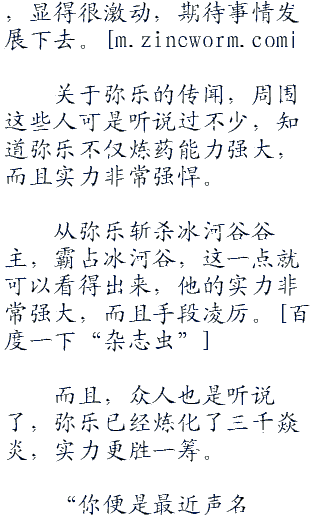 ，显得很激动，期待事情发
展下去。[m.zincworm.com]
关于弥乐的传闻，周围
这些人可是听说过不少，知
道弥乐不仅炼药能力强大，
而且实力非常强悍。
从弥乐斩杀冰河谷谷
主，霸占冰河谷，这一点就
可以看得出来，他的实力非
常强大，而且手段凌厉。[百
度一下“杂志虫”]
而且，众人也是听说
了，弥乐已经炼化了三千焱
炎，实力更胜一筹。
“你便是最近声名